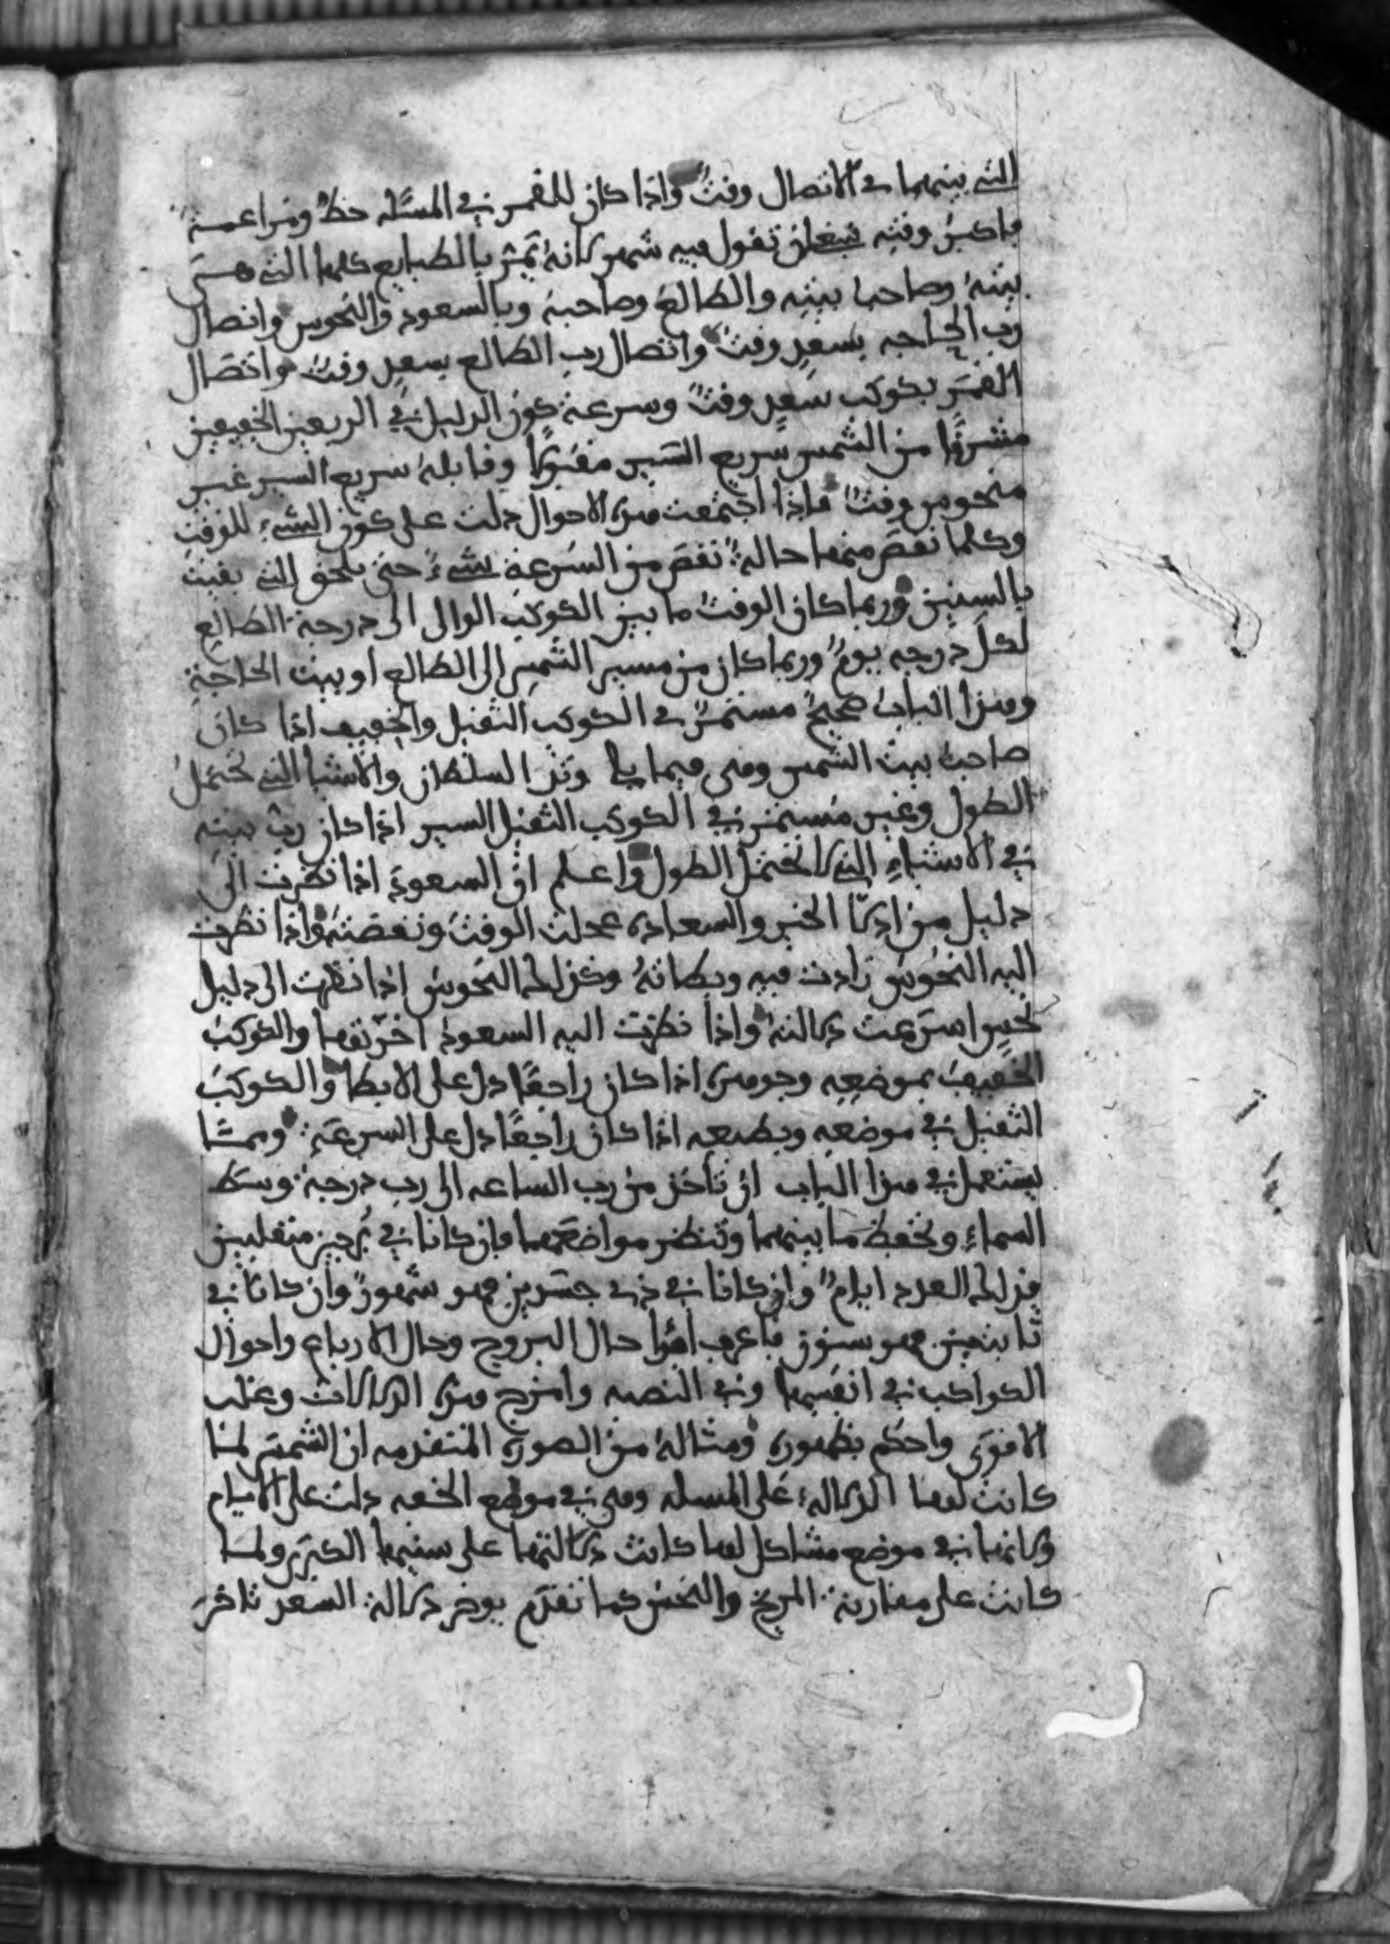 التي بينهما في الاتصال وقتٌ واذا كان للقمر في المسئله حظ ومزاعمة
فاكبر وقته فيعلى تقول فيه شهر لانه يمر بالطبايع كلها التي هي
بيته وصاحب بيته والطالع وصاحبه وبالسعود والنحوس واتصال
رب الحاجه بسعدٍ وقت واتصال رب الطالع بسعدٍ وقت واتصال
القمر بكوكب سعدٍ وقتٌ وسرعة كون الدليل في الربعين الخفيفين
مشرقًا من الشمس سريع السير مقبولًا وقابله سريع السير غير
منحوس وقت فاذا اجتمعت هذه الاحوال دلت على كون الشيء للوقت
وكلما نقص منها حالة نقص من السرعة شيءٌ حتى يلحق التي بقيت
بالسنين وربما كان الوقت ما بين الكوكب الوالى الى درجة الطالع
لكل درجه يومٌ وربما كان من مسير الشمس الى الطالع او بيت الحاجة
وهذا الباب صحيح مستمرٌ في الكوكب الثقيل والخفيف اذا كان
صاحب بيت الشمس وهي فيما يلى وتد السلطان والاشيا التي تحتمل
الطول وغير مستمر في الكوكب الثقيل السير اذا كان رب بيته
في الاشياء التي لا تحتمل الطول واعلم ان السعود اذا نظرت الى
دليل من ادلا الخير والسعاده عجلت الوقت ونقصته واذا نظرت
اليه النحوس زادت فيه وبطاته وكذلك النحوس اذا نظرت الى دليل
نحس اسرعت دلالته واذا نظرت اليه السعود اخرتها والكوكب
الخفيف بموضعه وجوهره اذا كان راجعًا دل على الابطا والكوكب
الثقيل في موضعه وبطبعه اذا كان راجعًا دل على السرعة ومما
يستعمل في هذا الباب ان تاخذ من رب الساعه الى رب درجة وسط
السماء وتحفظ ما بينهما وتنظر مواضعهما فان كانا في برجين منقلبين
فذلك العدد ايام وان كانا في ذي جسدين فهو شهور وان كانا في
ثابتين فهو سنون فاعرف اولا حال البروج وحال الارباع واحوال
الكواكب في انفسها وفي النصبه وامزج هذه الدلالات وغلب
الاقوى واحكم بظهوره ومثاله من الصوره المتقدمه ان الشمس لما
كانت لها الدلالة على المسله وهي في موضع الخفه دلت على الايام
ولانها في موضع مشاكل لها كانت دلالتها على سنيها الكبرى ولما
كانت على مقارنة المريخ والنحس كما تقدم يوخر دلالة السعد تاخر